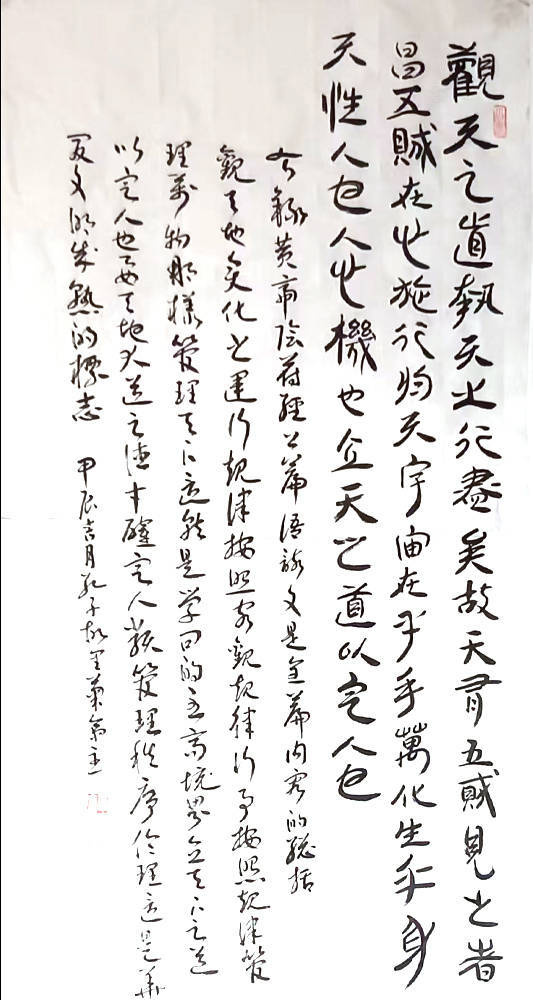 觀天之道執天之行盡矣故天有五賊見之者
昌五賊在心施行於天宇宙在乎手萬化生乎身
天性人也人心機也立天之道以定人也
右錄黃帝陰符經上篇語該文是全篇內容的總括
觀天地變化之運行規律按照客觀規律行事按照規律管
理萬物那樣管理天下這就是學问的至高境界立天下之道
以定人也天地大道之 確定人類管理秩序倫理這是華
夏文明成熟的標志
甲辰吉月孔子故里菊 主